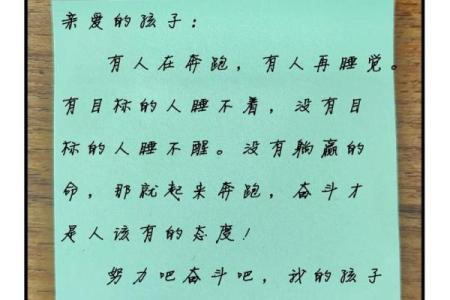 亲爱的孩子：
有人在奔跑，有人再睡觉。
有目标的人睡不着，没有目
标的人睡不醒。没有躺赢的
命，那就起来奔跑，奋斗才
是人该有的态度！
努力吧奋斗吧，我的孩子